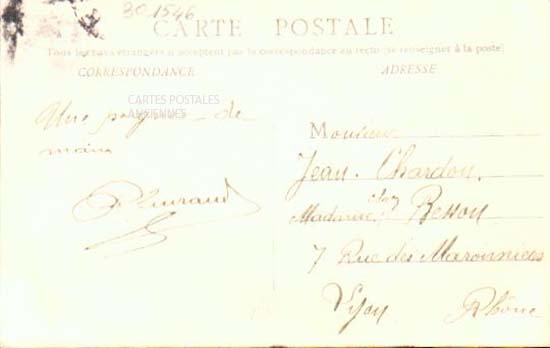 30 1546
CARTE POSTALE
Tous les pays étrangers n'acceptent pas la correspondance au recto (se renseigner à la poste)
CORRESPONDANCE
ADRESSE
CARTES POSTALES
ANCIENNES
Une poignée de
main
Monsieur
Jean Chardon
chez
Madame Besson
7 Rue des Maronniers
Lyon Rhône